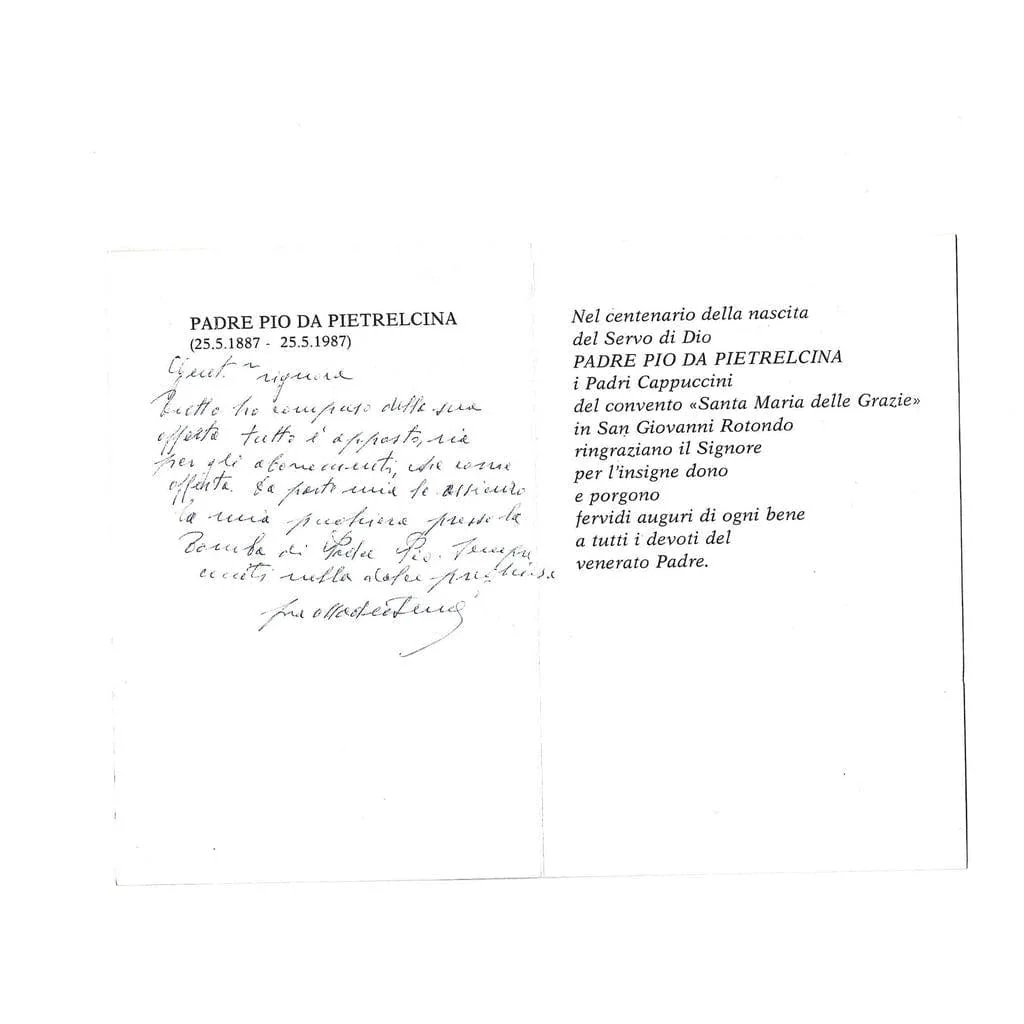 PADRE PIO DA PIETRELCINA
(25.5.1887 - 25.5.1987)
signora
Tutto ho compuso della sua
offerta tutto è apposto, sia
per gli abonamenti, che come
offerta. Da parte mia le assicuro
la mia preghiera presso la
Tomba di Padre Pio. Sempre
uniti nella dolce preghiera
fra
Nel centenario della nascita
del Servo di Dio
PADRE PIO DA PIETRELCINA
i Padri Cappuccini
del convento «Santa Maria delle Grazie»
in San Giovanni Rotondo
ringraziano il Signore
per l'insigne dono
e porgono
fervidi auguri di ogni bene
a tutti i devoti del
venerato Padre.